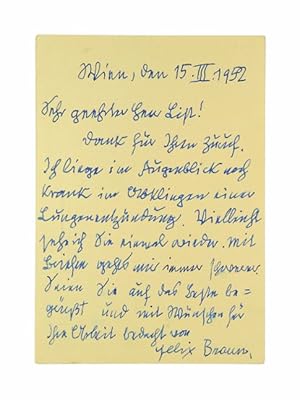 Wien, den 15. III. 1952
Sehr geehrter Herr List!
Dank für Ihren
Ich liege im Augenblick noch
krank im Abklingen einer
Lungenentzündung. Vielleicht
sehe ich Sie einmal wieder. Mit
geht's mir immer
Seien Sie auf das Beste be=
grüßt und mit Wünschen für
Ihre Arbeit bedacht von
Felix Braun.